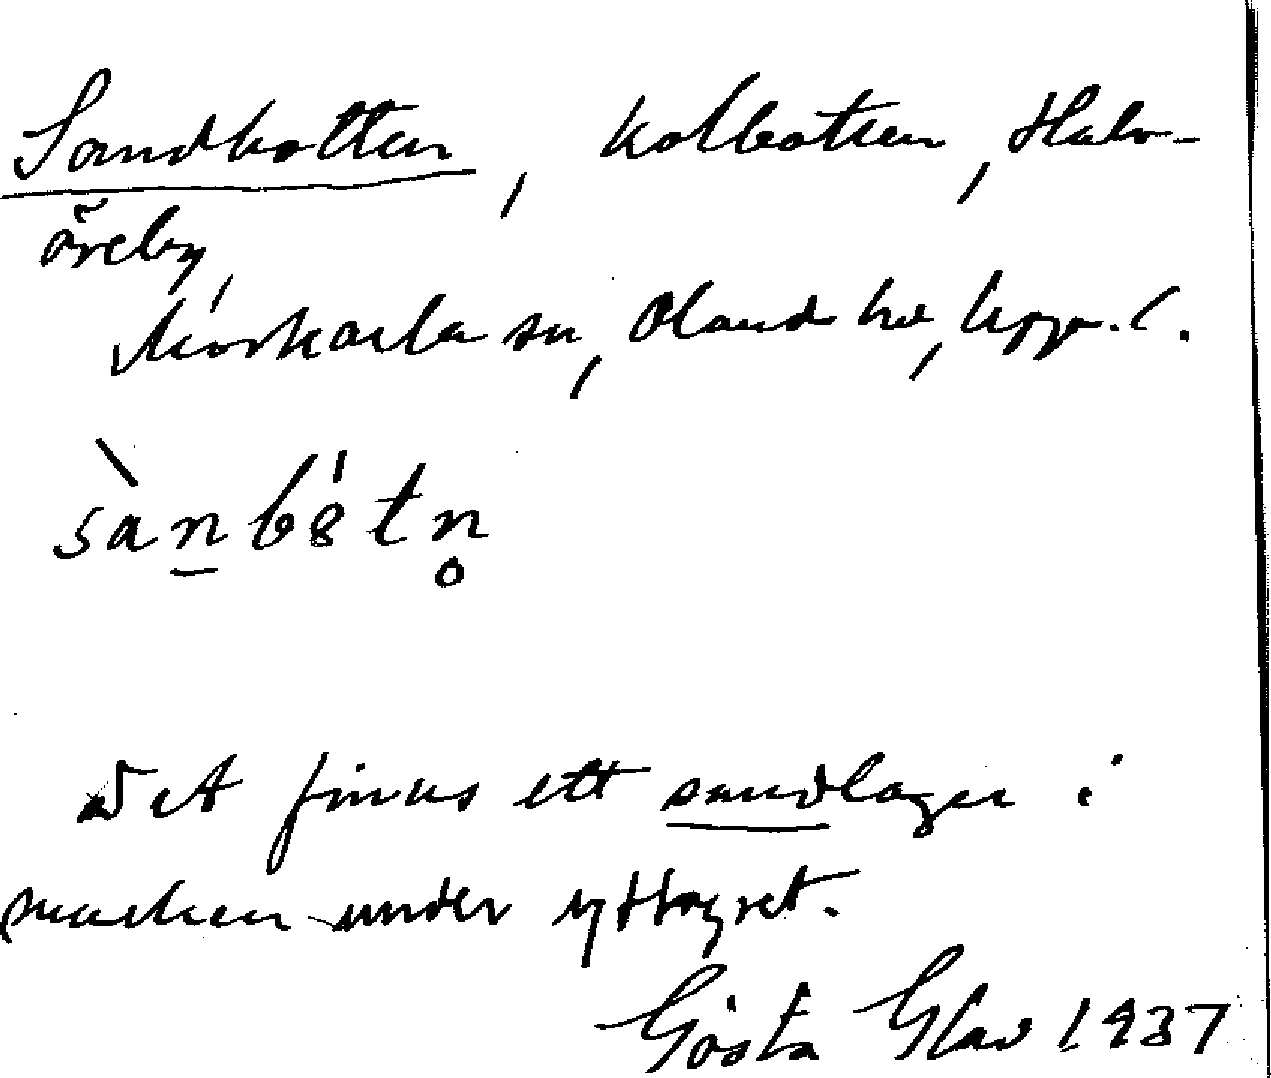 Sandbotten, kolbotten, Halv-
öreby,
Morkarla sn, Olands hd, Upps. l.
sànb8́tn̥
Det finns ett sandlager i
marken under yttlagret.
Gösta Glav 1937